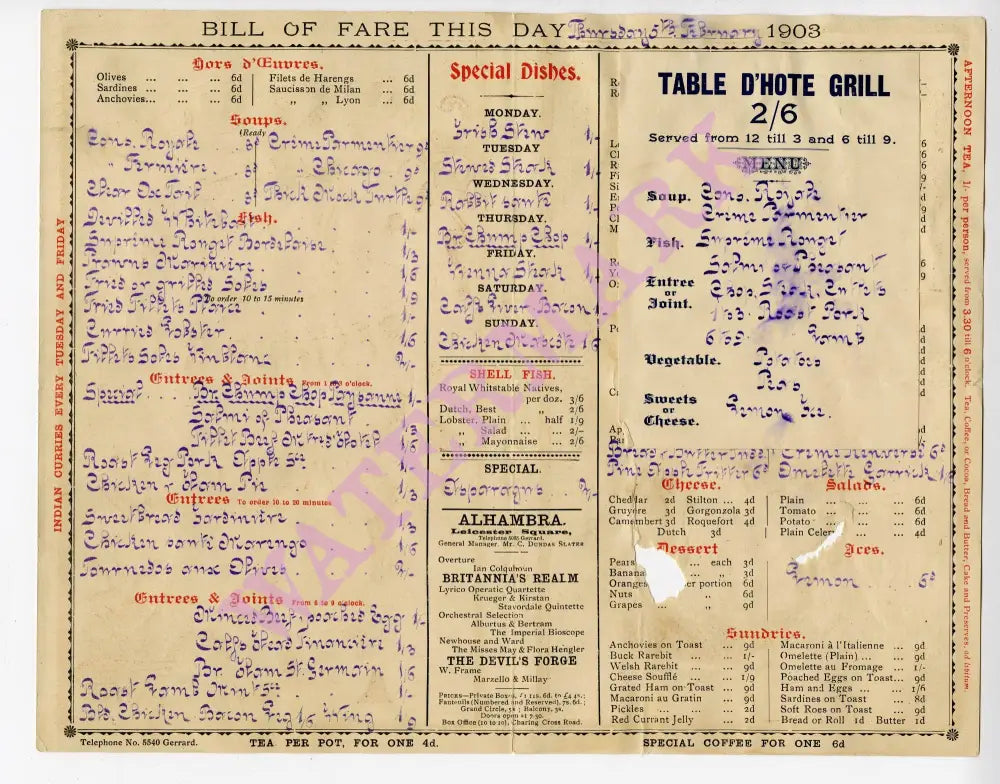 BILL OF FARE THIS DAY Thursday 5th February 1903
Hors d'Œuvres.
Olives ... ... ... 6d
Sardines ... ... ... 6d
Anchovies... ... ... 6d
Filets de Harengs ... 6d
Saucisson de Milan ... 6d
„ „ Lyon ... 6d
Soups.
(Ready
Cons. Royale
Crème Parmentier 9d
„ Fermière
„ Chicago 9d
Clear Ox Tail
Thick Mock Turtle 9d
Fish.
Devilled Whitebait 1/-
Suprême Rouget Bordelaise 1/3
Prawns Marinière 1/6
Fried or grilled Soles
To order 10 to 15 minutes
Fried Fillets Plaice
Curried Lobster 1/6
Fillets Soles 2/-
Entrees & Joints From 1 to 3 o'clock.
Special Br. Chump Chop Paysanne 1/-
Salmi of Pheasant 1/6
Fillet Beef
Roast Leg Pork Apple Sce
Chicken & Ham Pie 1/3
Entrees To order 10 to 20 minutes
Sweetbread Jardinière 1/3
Chicken sauté Marengo 1/6
Tournedos aux Olives 2/-
Entrées & Joints From 6 to 9 o'clock.
Minced Beef poached Egg 1/-
Calf's Head Financière 1/3
Br. Ham St. Germain 1/6
Roast Lamb Mint Sce
Chicken Bacon Leg 1/6 Wing 1/9
Telephone No. 5540 Gerrard.
TEA PER POT, FOR ONE 4d.
INDIAN CURRIES EVERY TUESDAY AND FRIDAY
Special Dishes.
MONDAY.
Irish Stew 1/-
TUESDAY
Stewed Steak 1/-
WEDNESDAY.
Rabbit sauté 1/-
THURSDAY.
Br. Chump Chop 1/-
FRIDAY.
Vienna Steak 1/-
SATURDAY.
Calf's Liver & Bacon 1/-
SUNDAY.
Chicken 1/6
SHELL FISH.
Royal Whitstable Natives,
per doz. 3/6
Dutch, Best „ 2/6
Lobster, Plain ... half 1/9
„ Salad ... „ 2/-
„ Mayonnaise ... 2/6
SPECIAL.
Asparagus 2/-
ALHAMBRA.
Leicester Square,
Telephone 5065 Gerrard.
General Manager. Mr. C. DUNDAS SLATER
Overture
Ian Colquhoun
BRITANNIA'S REALM
Lyrico Operatic Quartette
Krueger & Kirstan
Stavordale Quintette
Orchestral Selection
Alburtus & Bertram
The Imperial Bioscope
Newhouse and Ward
The Misses May & Flora Hengler
THE DEVIL'S FORGE
W. Frame
Marzello & Millay
PRICES—Private Boxes, £1 11s. 6d. to £4 4s.;
Fauteuils (Numbered and Reserved), 7s. 6d.;
Grand Circle, 5s; Balcony, 3s.
Doors open at 7.30.
Box Office (10 to 10), Charing Cross Road.
TABLE D'HOTE GRILL
2/6
Served from 12 till 3 and 6 till 9.
MENU
Soup. Cons. Royale
Crème Parmentier
Fish. Suprême Rouget
Entree or Joint.
Salmi of Pheasant
Chop, Steak, Cutlets
1 to 3. Roast Pork
6 to 9. „ Lamb
Vegetable. Potatoes
Peas
Sweets or Cheese.
Lemon Ice.
Bread & Butter Pudding
Crème Renversé 6d
Pine Apple Fritter 6d
Omelette Garrick 1/-
Cheese.
Cheddar 2d Stilton ... 4d
Gruyere 3d Gorgonzola 3d
Camembert 3d Roquefort 4d
Dutch 3d
Salads.
Plain ... ... ... 6d
Tomato ... ... ... 6d
Potato ... ... 6d
Plain Celery ... 4d
Dessert
Pears ... each 3d
Banana 3d
Oranges per portion 6d
Nuts „ 6d
Grapes ... „ 9d
Ices.
Lemon 6d
Sundries.
Anchovies on Toast ... 9d
Buck Rarebit ... ... 1/-
Welsh Rarebit ... ... 9d
Cheese Soufflé ... ... 1/9
Grated Ham on Toast ... 9d
Macaroni au Gratin ... 9d
Pickles ... ... ... 2d
Red Currant Jelly ... 2d
Macaroni à l'Italienne ... 9d
Omelette (Plain) ... ... 9d
Omelette au Fromage ... 1/-
Poached Eggs on Toast... 9d
Ham and Eggs ... ... 1/6
Sardines on Toast ... 8d
Soft Roes on Toast ... 9d
Bread or Roll 1d Butter 1d
SPECIAL COFFEE FOR ONE 6d
AFTERNOON TEA, 1/- per person, served from 3.30 till 6 o'clock. Tea, Coffee, or Cocoa, Bread and Butter, Cake and Preserves, ad libitum.
WATERMARK